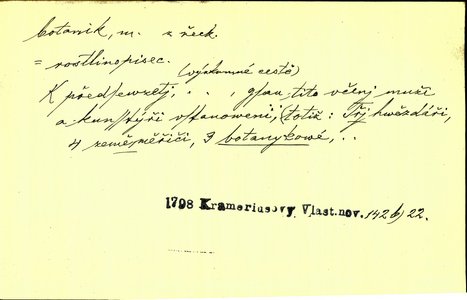 botanik, m. z řeck.
= rostlinopisec.
(výzkumné cestě)
K předsewzetj, . . , gsau tito včenj muži
a kunsstýři vstanoweni, (totiž : Tři hwězdáři,
4 zeměměřiči, 3 botanykowé, . .
1798 Krameriusovy Vlast.nov. 142 b) 22.